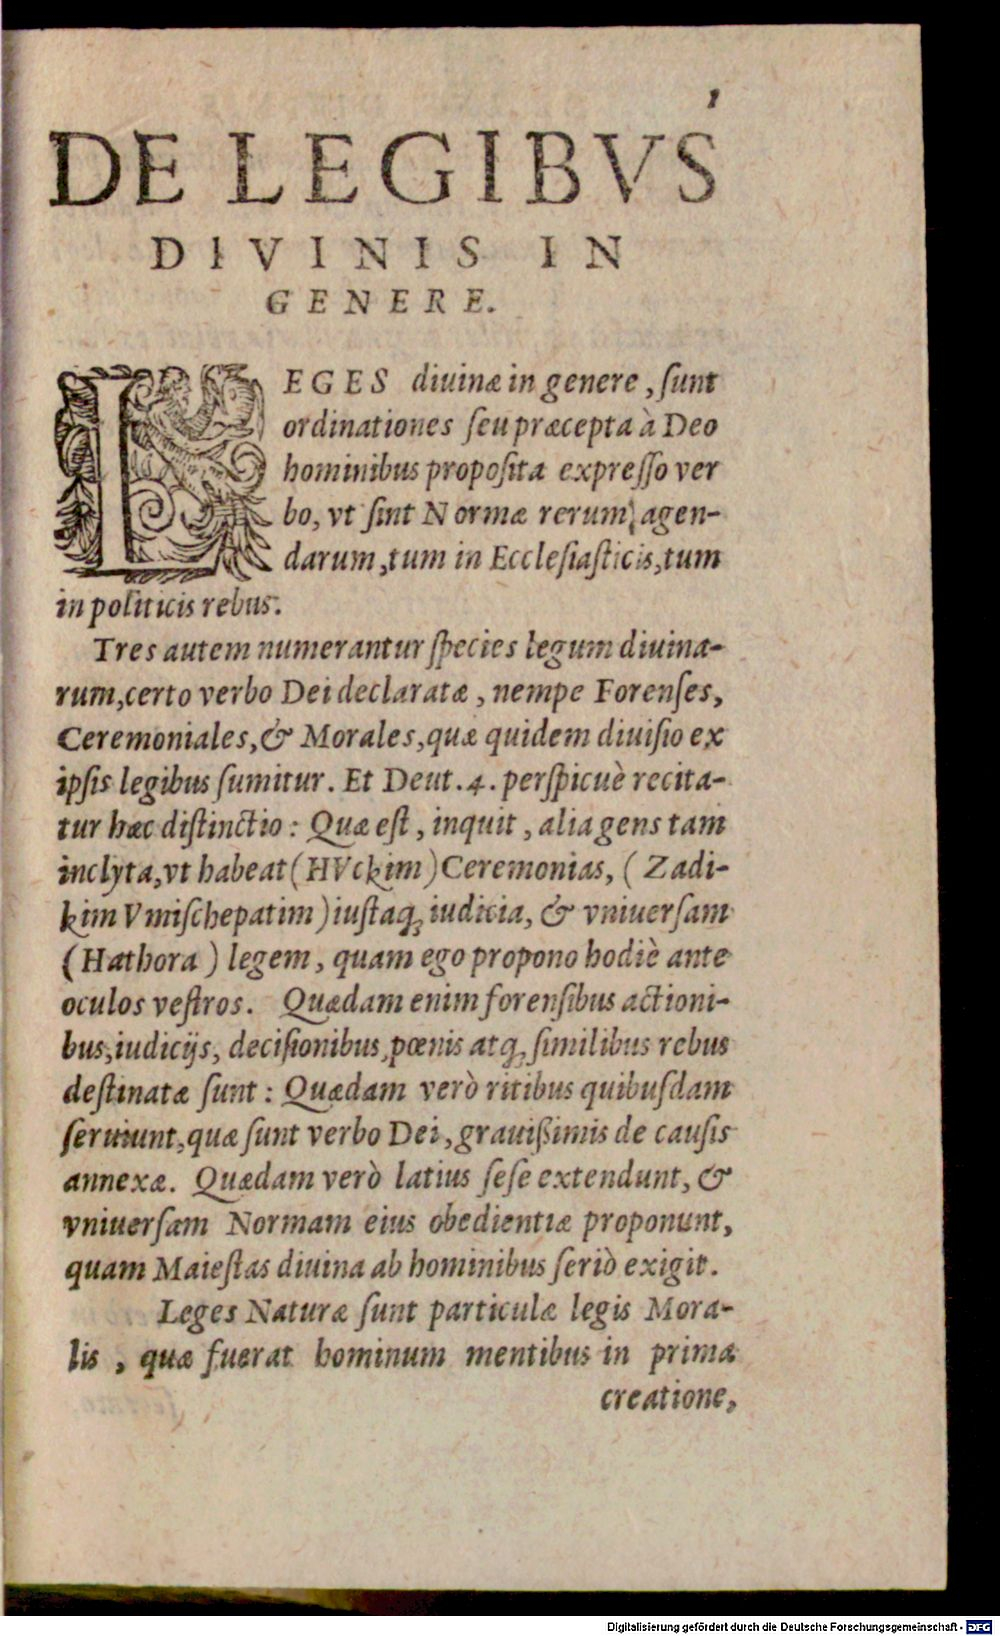 DE LEGIBVS
DIVINIS IN
GENERE.
LEGES diuinæ in genere, ſunt
ordinationes ſeu præcepta à Deo
hominibus propoſita expreſſo ver
bo, vt ſint Normæ rerum agen-
darum, tum in Eccleſiaſticis, tum
in politicis rebus.
Tres autem numerantur ſpecies legum diuina-
rum, certo verbo Dei declaratæ, nempe Forenſes,
Ceremoniales, & Morales, quæ quidem diuiſio ex
ipſis legibus ſumitur. Et Deut. 4. perſpicuè recita-
tur hæc diſtinctio: Quæ eſt, inquit, alia gens tam
inclyta, vt habeat (HVckim) Ceremonias, (Zadi-
kim Vmiſchepatim) iuſtaq́; iudicia, & vniuerſam
(Hathora) legem, quam ego propono hodiè ante
oculos veſtros. Quædam enim forenſibus actioni-
bus, iudicijs, deciſionibus, pœnis atq; ſimilibus rebus
deſtinatæ ſunt: Quædam verò ritibus quibuſdam
ſeruiunt, quæ ſunt verbo Dei, grauißimis de cauſis
annexæ. Quædam verò latius ſeſe extendunt, &
vniuerſam Normam eius obedientiæ proponunt,
quam Maieſtas diuina ab hominibus ſeriò exigit.
Leges Naturæ ſunt particulæ legis Mora-
lis, quæ fuerat hominum mentibus in prima
creatione,
Digitalisierung gefördert durch die Deutsche Forschungsgemeinschaft - DFG